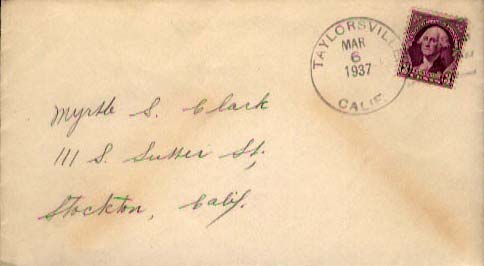 TAYLORSVILLE
MAR
6
1937
CALIF.
Myrtle S. Clark
111 S. Sutter St,
Stockton, Calif.